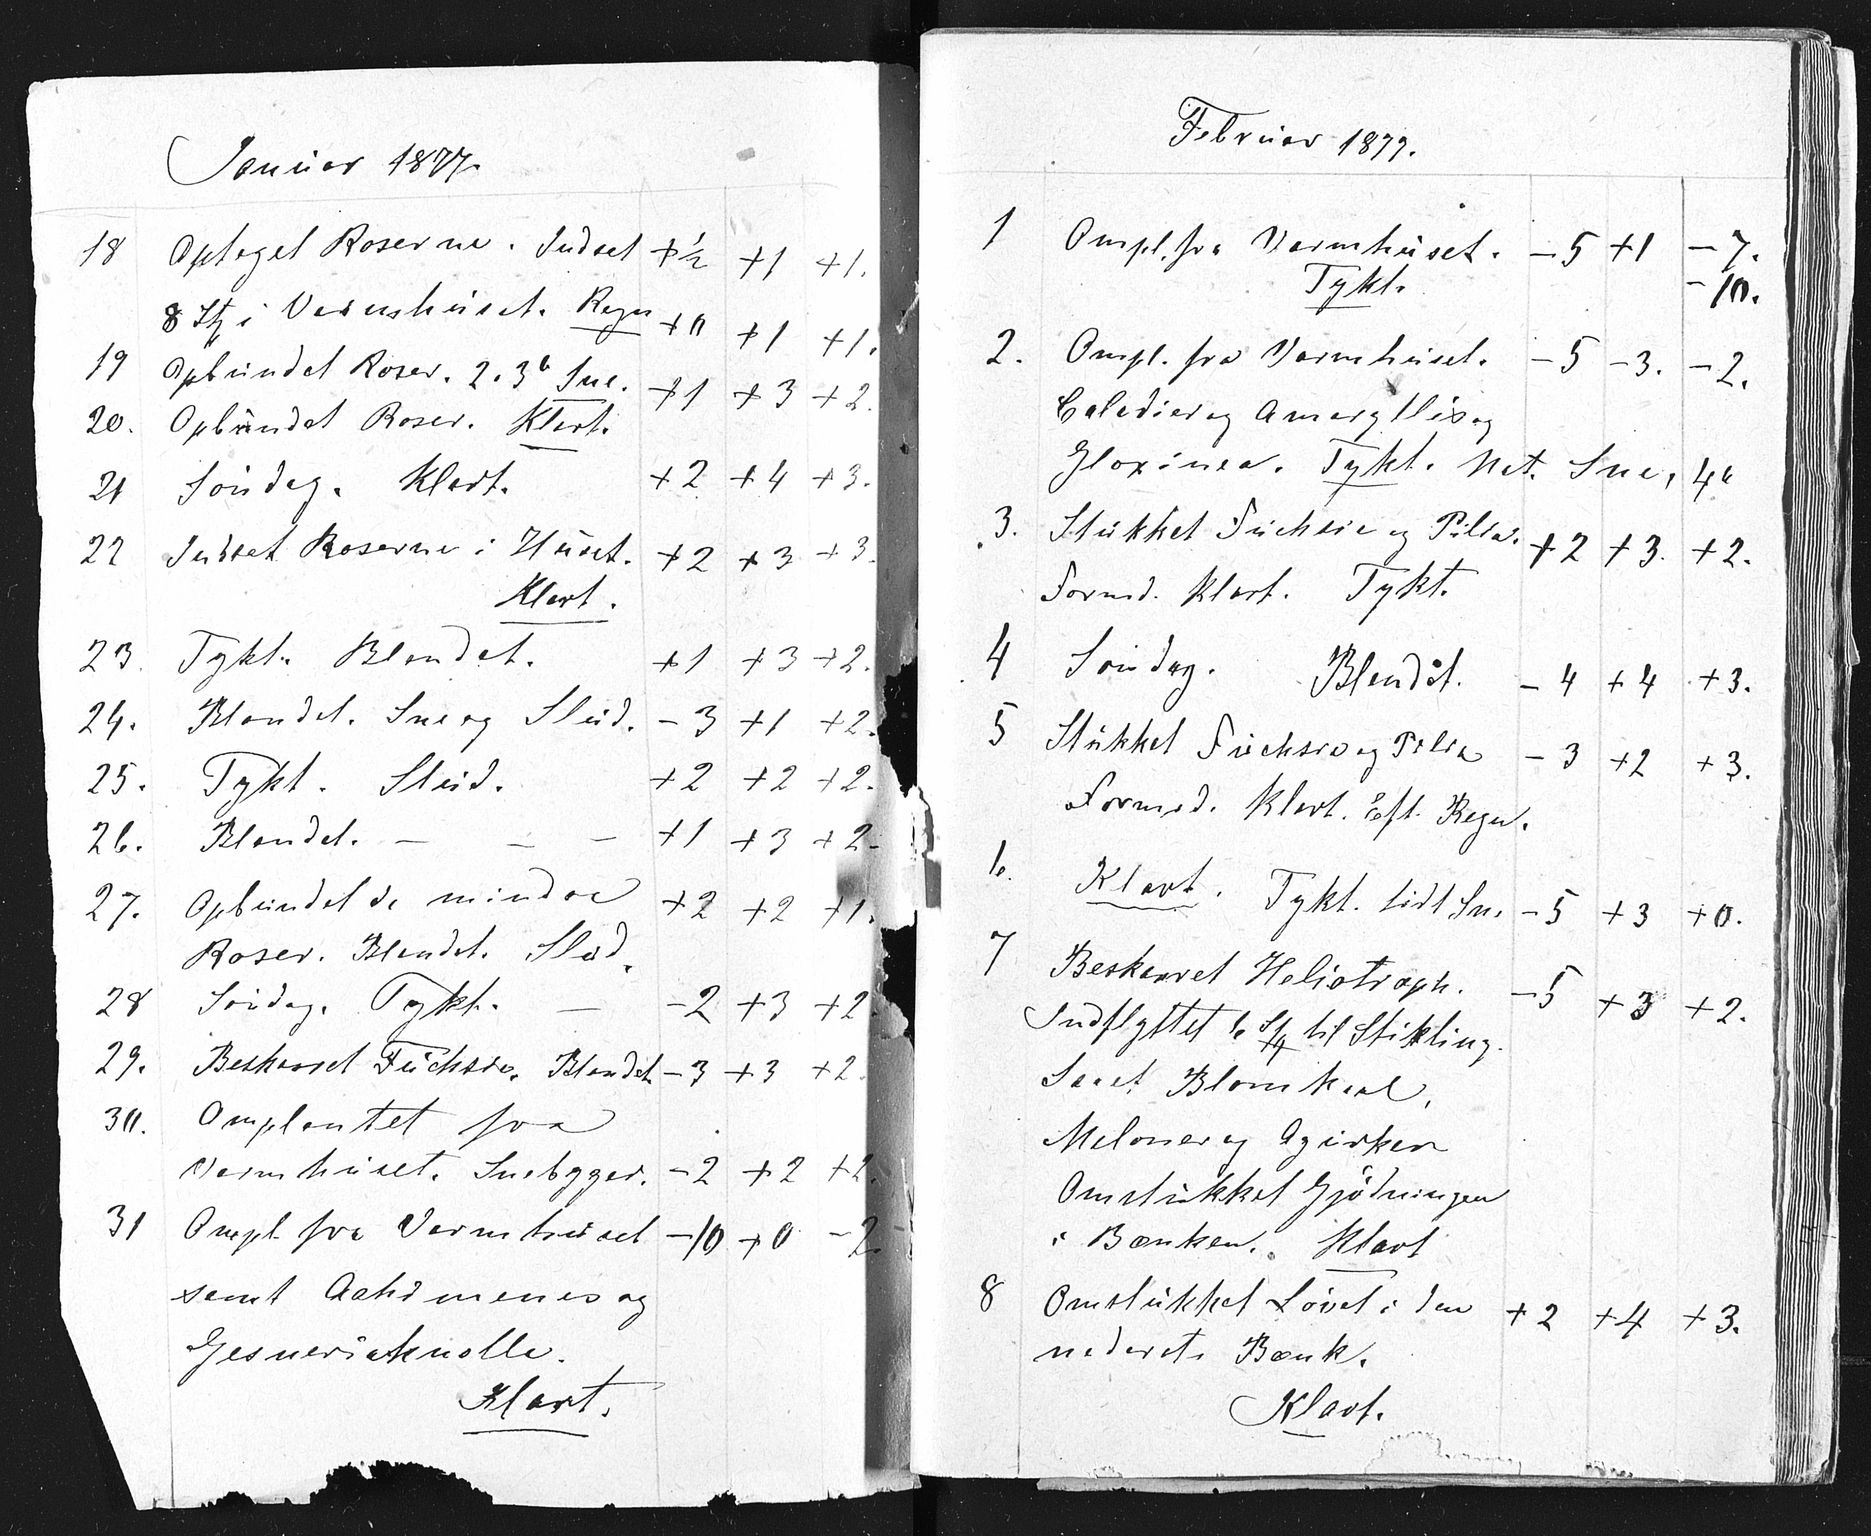 Januar 1877.
18 Optaget Roserne. Indsat +½ +1 +1.
8 Stj i Varmhuset. Regn +0 +1 +1.
19 Opbundet Roser. 2. 3" Sne. +1 +3 +2.
20. Opbundet Roser. Klart.
21 Søndag. Klart. +2 +4 +3.
22 Indsat Roserne i Huset. +2 +3 +3.
Klart.
23. Tykt. Blandet. +1 +3 +2.
24. Blandet. Sne og Slud. -3 +1 +2.
25. Tykt. Slud. +2 +2 +2.
26. Blandet. — — — +1 +3 +2.
27. Opbundet de mindre +2 +2 +1.
Roser. Blandet. Slud.
28 Søndag. Tykt. — -2 +3 +2
29. Beskaaret Fuchsia. Blandet -3 +3 +2.
30. Omplantet fra
Varmhuset. Snebyger. -2 +2 +2.
31 Ompl. fra Varmhuset -10 +0 -2.
samt Achimenes og
Gesneriaknolle.
Klart.
Februar 1877.
1 Ompl. fra Varmhuset. -5 +1 -7.
Tykt. -10.
2. Ompl. fra Varmhuset. -5 -3. -2.
Caladier og Amaryllis og
Gloxinea. Tykt. Nat. Sne, 4"
3. Stukket Fuchsie og Pilea. +2 +3. +2.
Formd. Klart. Tykt.
4 Søndag. Blandet. -4 +4 +3.
5 Stukket Fuchsia og Pilea -3 +2 +3.
Formd. Klart. Eft. Regn.
6. Klart. Tykt. lidt Sne -5 +3 +0.
7 Beskaaret Heliotroph. -5 +3 +2.
Indflyttet 6 Stj til Stikling.
Saaet Blomkaal,
Meloner og Agurker
Omstukket Gjødningen
i Bænken. Klart
8 Omstukket Løvet i den +2 +4 +3.
nederste Bænk.
Klart.